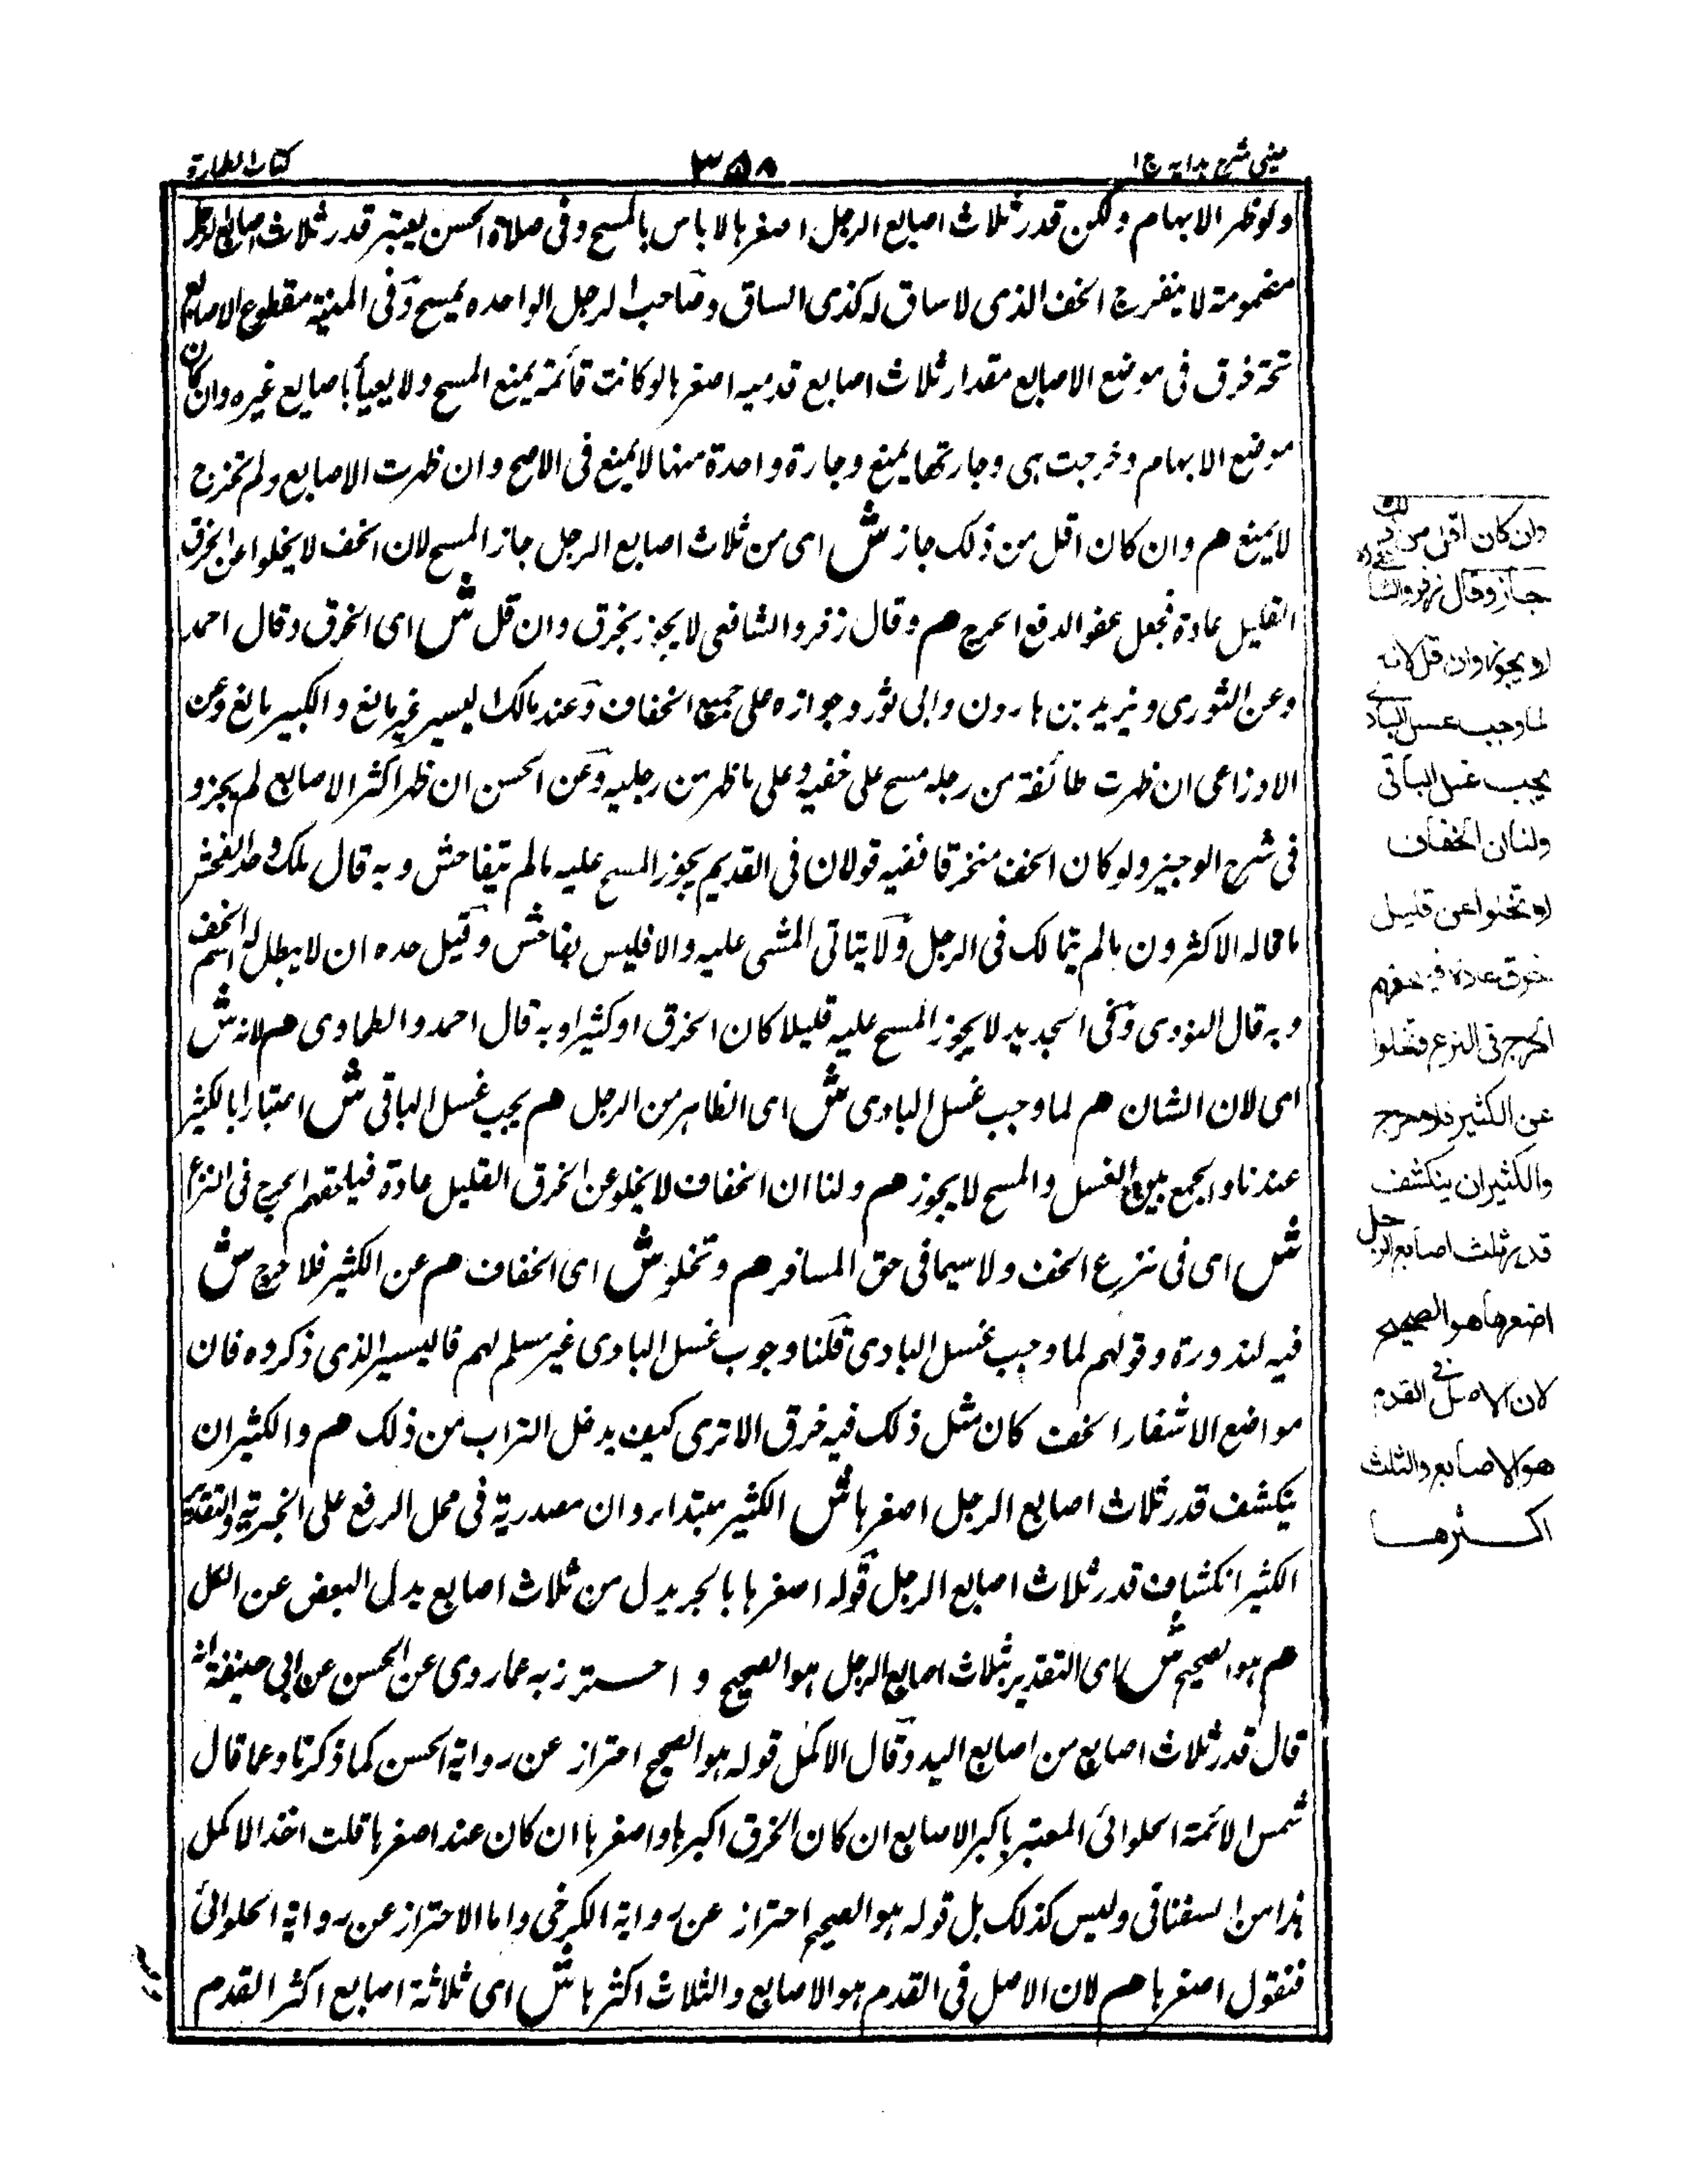 عینی شرح ہدایہ ج ١
٣٥٨
كتاب الطهارة
ولو ظهر الابهام ولكن قدر ثلاث اصابع الرجل اصغرها لا باس بالمسح وفى صلاة الحسن يعتبر قدر ثلاث اصابع الرجل
مضمومة لا منفرج الخف الذى لا ساق له كذى الساق وصاحب الرجل الواحده يمسح وفى المنية مقطوع الاصابع
تحته خرق فى موضع الاصابع مقدار ثلاث اصابع قدميه اصغرها لو كانت قائمة يمنع المسح ولا يعبأ باصابع غيره وان كان
موضع الابهام وخرجت هى وجارتها يمنع وجارة واحدة منها لا يمنع فى الاصح وان ظهرت الاصابع ولم تخرج
لا يمنع هم وان كان اقل من ذلك جاز ش اى من ثلاث اصابع الرجل جاز المسح لان الخف لا يخلوا عن الخرق
القليل عادة فجعل عفوا لدفع الحرج هم وقال زفر والشافعى لا يجوز بخرق وان قل ش اى الخرق وقال احمد
وعن الثورى ويزيد بن هارون وابى ثور وجوازه على جميع الخفاف وعند مالك اليسير غير مانع والكبير مانع وعن
الاوزاعى ان ظهرت طائفة من رجله مسح على خفيه وعلى ما ظهر من رجليه وعن الحسن ان ظهر اكثر الاصابع لم يجز و
فى شرح الوجيز ولو كان الخف منخرقا ففيه قولان فى القديم يجوز المسح عليه ما لم يتفاحش وبه قال ملك وحد الفحش
ما قاله الاكثرون ما لم يتمالك فى الرجل ولا يتاتى المشى عليه والا فليس بفاحش وقيل حده ان لا يبطل له اسم الخف
وبه قال النووى وفى الجديد لا يجوز المسح عليه قليلا كان الخرق او كثيرا وبه قال احمد والطحاوى هم لانه ش
اى لان الشان هم لما وجب غسل البادى ش اى الظاهر من الرجل هم يجب غسل الباقى ش اعتبارا بالكثير
عندنا والجمع بين الغسل والمسح لا يجوز هم ولنا ان الخفاف لا يخلو عن الخرق القليل عادة فيلحقهم الحرج فى النزع
ش اى فى نزع الخف ولا سيما فى حق المسافر هم وتخلو ش اى الخفاف هم عن الكثير فلا حرج ش
فيه لندورة وقولهم لما وجب غسل البادى قلنا وجوب غسل البادى غير مسلم لهم فاليسير الذى ذكروه فان
مواضع الاشفار الخف كان مثل ذلك فيه خرق الا ترى كيف يدخل التراب من ذلك هم والكثير ان
ينكشف قدر ثلاث اصابع الرجل اصغرها ش الكثير مبتداء وان مصدرية فى محل الرفع على الخبرية والتقدير
الكثير انكشاف قدر ثلاث اصابع الرجل قوله اصغرها بالجر بدل من ثلاث اصابع بدل البعض عن الكل
هم هو الصحيح ش اى التقدير بثلاث اصابع الرجل هو الصحيح و احترز به عما روى عن الحسن عن ابى حنيفة انه
قال قدر ثلاث اصابع من اصابع اليد وقال الاكمل قوله هو الصحيح احتراز عن رواية الحسن كما ذكرنا وعما قال
شمس الائمة الحلوائى المعتبر باكبر الاصابع ان كان الخرق اكبرها واصغرها ان كان عند اصغرها قلت اخذ الاكمل
هذا من السغناقى وليس كذلك بل قوله هو الصحيح احتراز عن رواية الكرخى واما الاحتراز عن رواية الحلوائى
فنقول اصغرها هم لان الاصل فى القدم هو الاصابع والثلاث اكثرها ش اى ثلاثة اصابع اكثر القدم
وان كان اقل من ذلك
جاز وقال زفر والشافعى
لا يجوز وان قل لانه
لما وجب غسل البادى
يجب غسل الباقى
ولنا ان الخفاف
لا تخلوا عن قليل
خرق عادة فيلحقهم
الحرج فى النزع وتخلوا
عن الكثير فلا حرج
والكثير ان ينكشف
قدر ثلث اصابع الرجل
اصغرها هو الصحيح
لان الاصل فى القدم
هو الاصابع والثلث
اكثرها